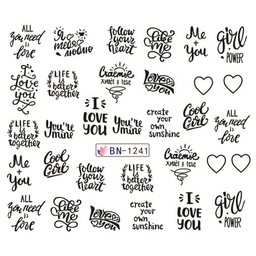 ALL
you
need is
love
Я
тебя
люблю
follow
your
heart
Take
Me
Me
+
You
girl
POWER
I
Love
you
LIFE
is
better
together
Счастье
живет в теле
Love
you
I
LOVE
YOU
You're
Mine
create
your own
sunshine
Cool
Girl
ALL
you
need is
love
LIFE
is
better
together
You're
Mine
Счастье
живет в теле
Me
+
You
Cool
Girl
BN-1241
follow
your
heart
LIFE
is
better
together
ALL
you
need is
love
Take
Me
Love
you
create
your own
sunshine
I
LOVE
YOU
Me
+
You
girl
POWER